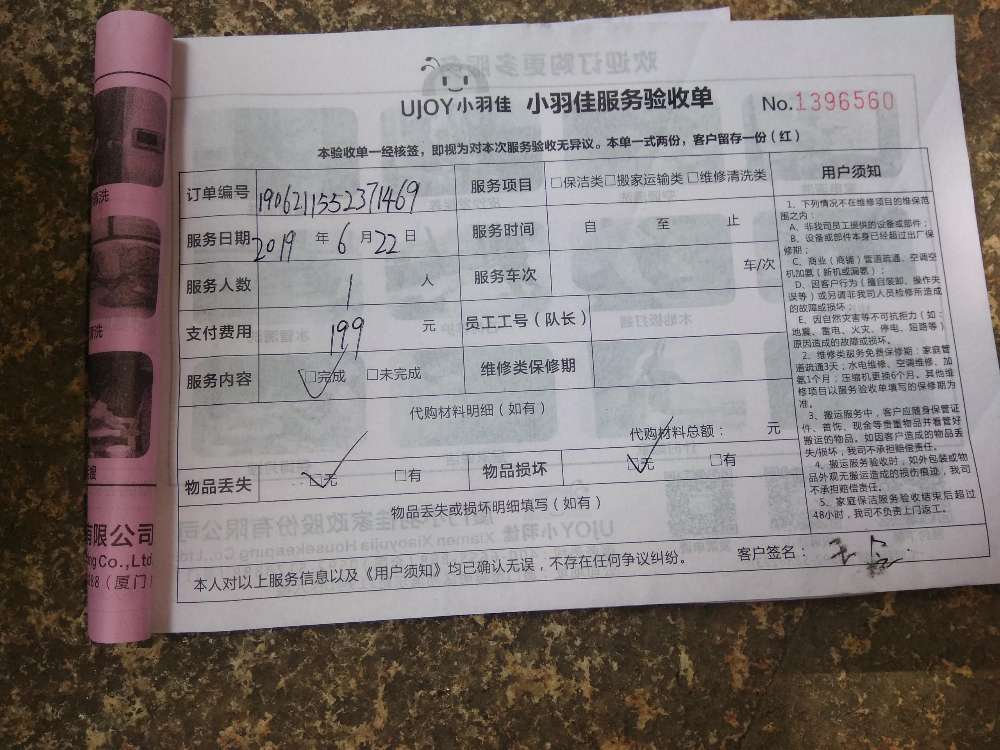 UJOY小羽佳 小羽佳服务验收单 No.1396560
本验收单一经核签，即视为对本次服务验收无异议。本单一式两份，客户留存一份（红）
订单编号 1906211552371469 服务项目 □保洁类□搬家运输类□维修清洗类
服务日期 2019 年 6 月 22 日 服务时间 自 至 止
服务人数 1 人 服务车次 车/次
支付费用 199 元 员工工号（队长）
服务内容 □完成 □未完成 维修类保修期
代购材料明细（如有）
代购材料总额： 元
物品丢失 □无 □有 物品损坏 □无 □有
物品丢失或损坏明细填写（如有）
本人对以上服务信息以及《用户须知》均已确认无误，不存在任何争议纠纷。 客户签名：
用户须知
1、下列情况不在维修项目的维保范
围之内：
A、非我司员工提供的设备或部件；
B、设备或部件本身已经超过出厂保
修期；
C、商业（商铺）管道疏通、空调空
机加氨（新机或漏氨）；
D、因客户行为（擅自装卸、操作失
误等）或另请非我司人员检修所造成
的故障或损坏；
E、因自然灾害等不可抗拒力（如：
地震、雷电、火灾、停电、短路等）
原因造成的故障或损坏。
2、维修类服务免费保修期：家庭管
道疏通3天；水电维修、空调维修、加
氨1个月；压缩机更换6个月。其他维
修项目以服务验收单填写的保修期为
准。
3、搬运服务中，客户应随身保管证
件、首饰、现金等贵重物品并看管好
搬运的物品。如因客户造成的物品丢
失/损坏，我司不承担赔偿责任。
4、搬运服务验收时，如外包装或物
品外观无搬运造成的损伤痕迹，我司
不承担赔偿责任。
5、家庭保洁服务验收结束后超过
48小时，我司不负责上门返工。
清洗
清洗
有限公司
ng Co.,Ltd
（厦门
欢迎订购更多服务
厦门小羽佳家政股份有限公司
UJOY小羽佳 Xiamen Xiaoyujia Housekeeping Co.,Ltd